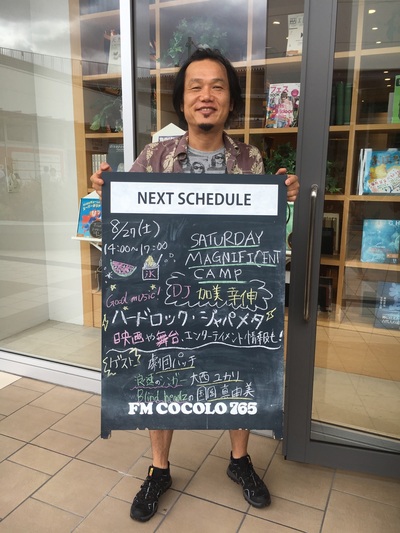 NEXT SCHEDULE
8/27(土)
14:00~17:00
SATURDAY
MAGNIFICENT
CAMP
Good music!
DJ 加美幸伸
ハードロック・ジャパメタ
映画や舞台、エンターテイメント情報も!
ゲスト
劇団パッチ
大西ユカリ
Blind headzの
FM COCOLO 765